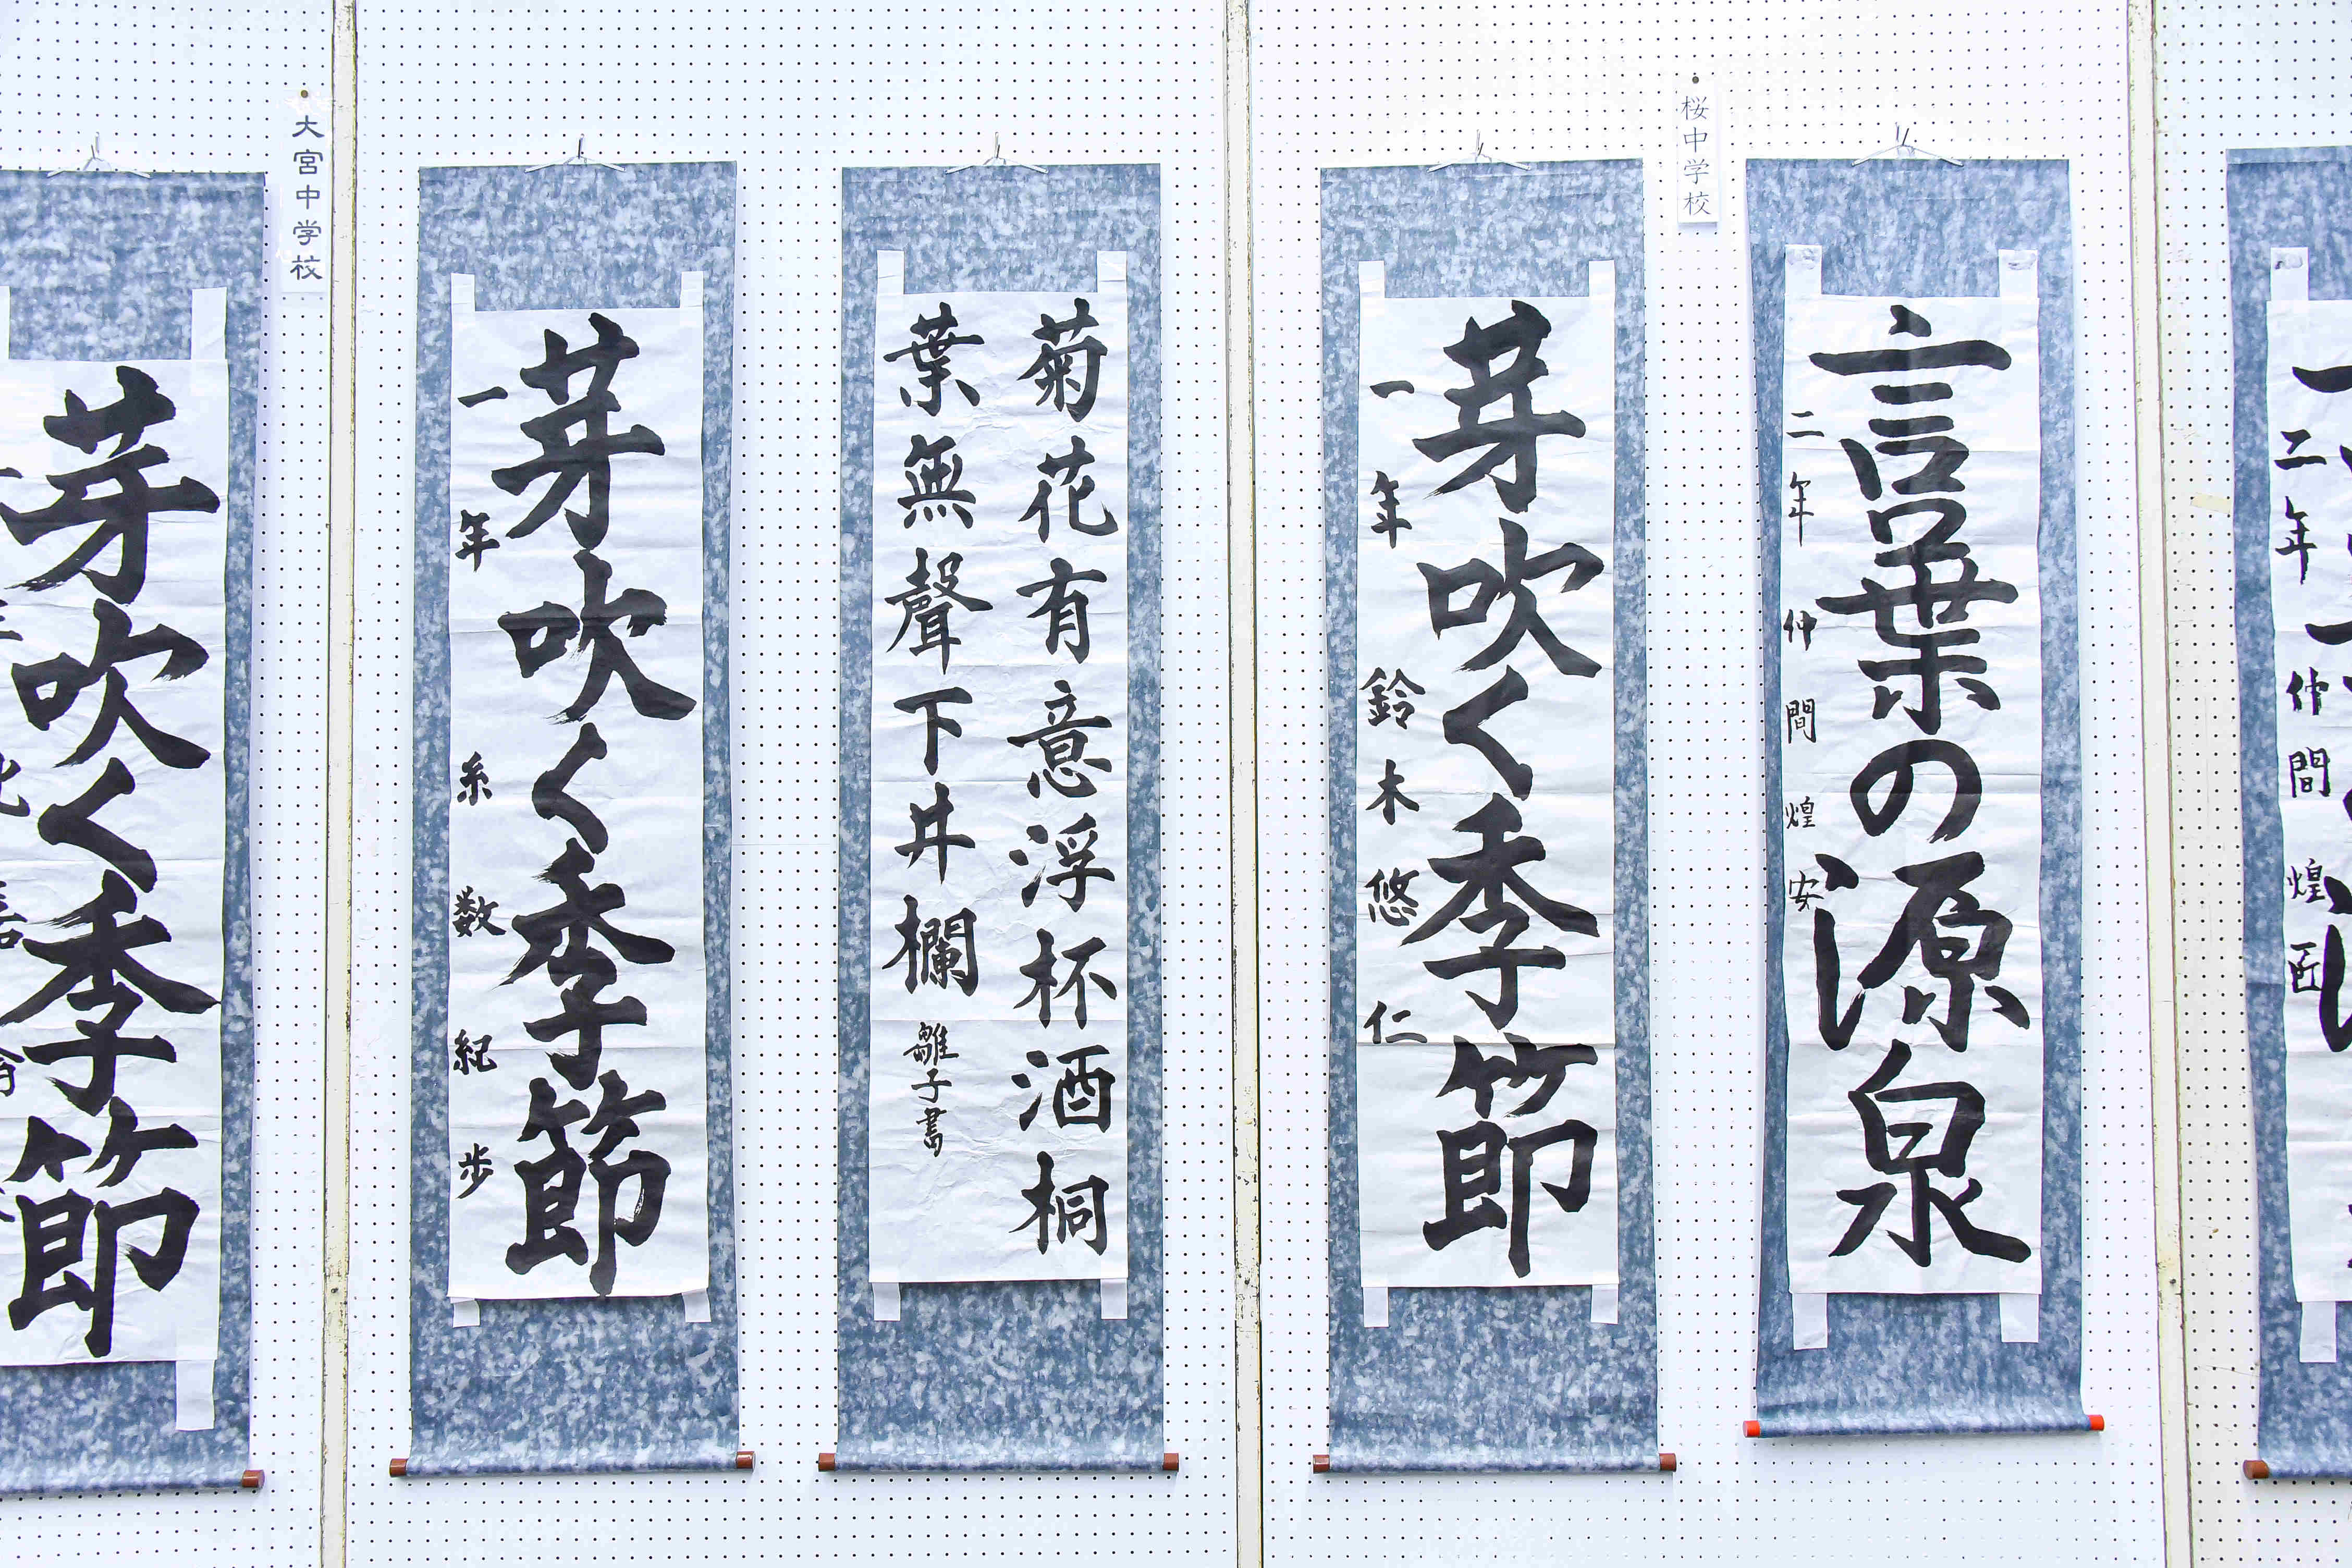 大宮中学校
芽吹く季節
芽吹く季節
一年 糸数紀歩
菊花有意浮杯酒桐
葉無聲下井欄
雛子書
桜中学校
芽吹く季節
一年 鈴木悠仁
言葉の源泉
二年 仲間煌安
二年 仲間煌匠